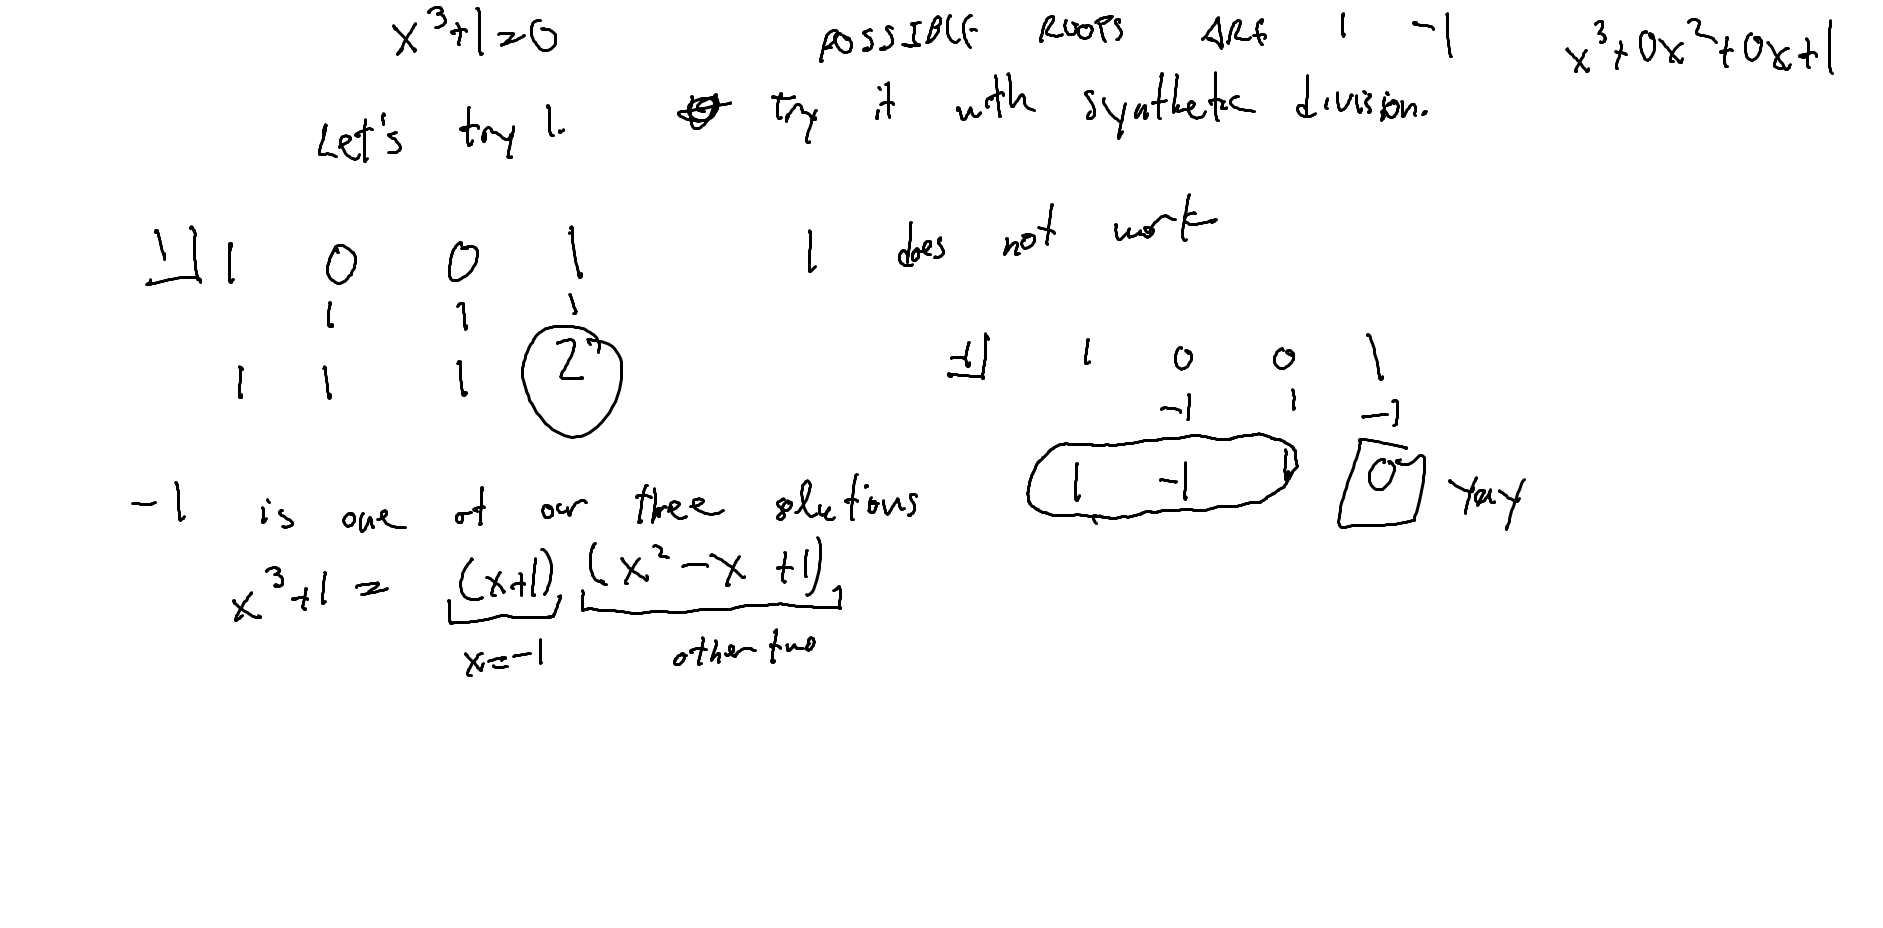 x³+1=0 POSSIBLE ROOTS ARE 1 -1 x³+0x²+0x+1
Let's try 1. try it with synthetic division.
1 1 0 0 1 1 does not work
1 1 1
1 1 1 2
-1 1 0 0 1
-1 1 -1
1 -1 1 0 Yay
-1 is one of our three solutions
x³+1 = (x+1) (x²-x +1)
x=-1 other two